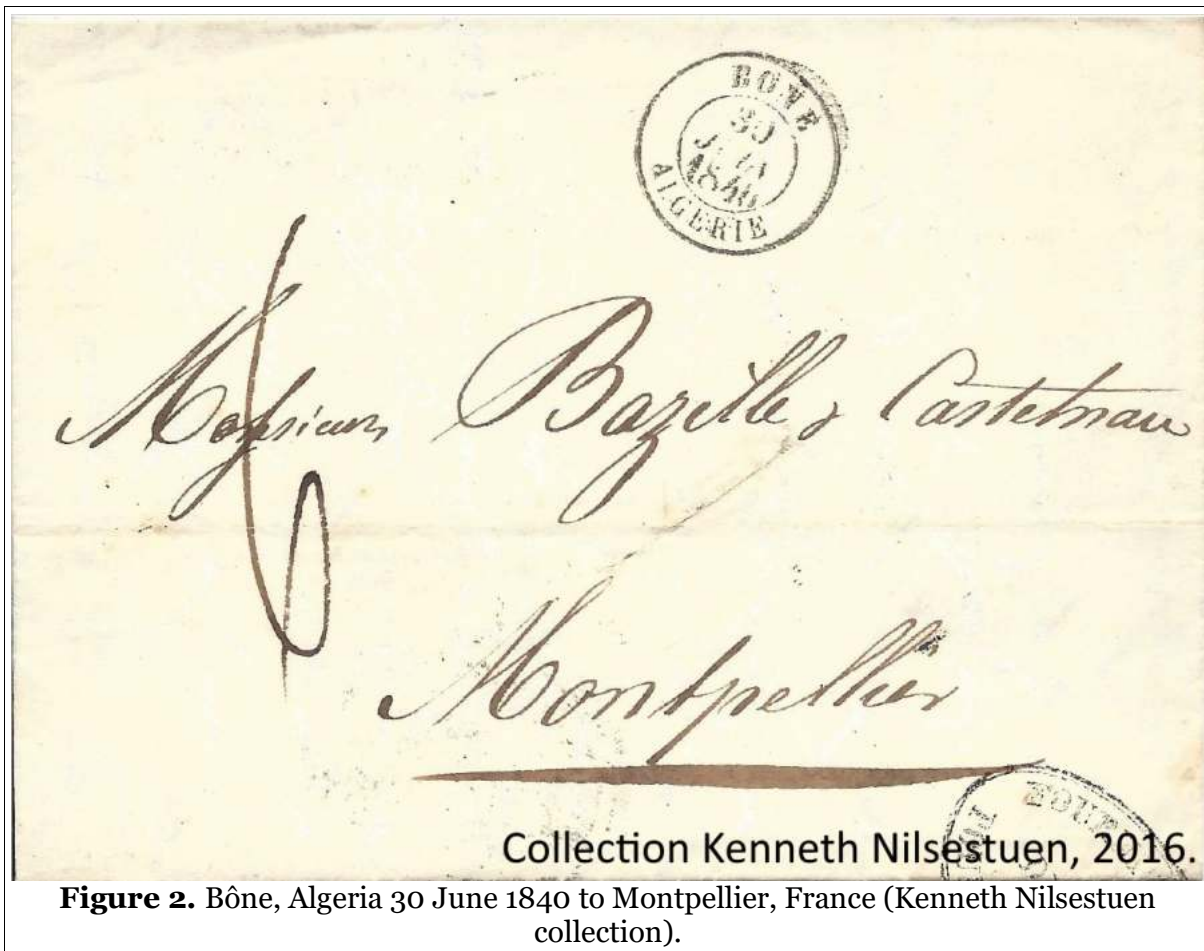 BONE
30
JUIN
1840
ALGERIE
Messieurs Bazille & Castelnau
6
Montpellier
Collection Kenneth Nilsestuen, 2016.
Figure 2. Bône, Algeria 30 June 1840 to Montpellier, France (Kenneth Nilsestuen
collection).